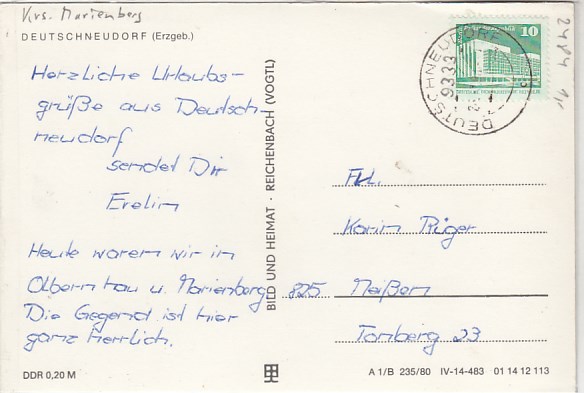 Krs. Marienberg
DEUTSCHNEUDORF (Erzgeb.)
Herzliche Urlaubs-
grüße aus Deutsch-
neudorf
sendet Dir
Evelin
Heute waren wir in
Olbernhau u. Marienberg
Die Gegend ist hier
ganz herrlich.
DDR 0,20 M
BILD UND HEIMAT · REICHENBACH (VOGTL)
10
DEUTSCHNEUDORF
9333
Frl.
Karin Rüger
825 Meißen
Tonberg 23
A 1/B 235/80 IV-14-483 01 14 12 113